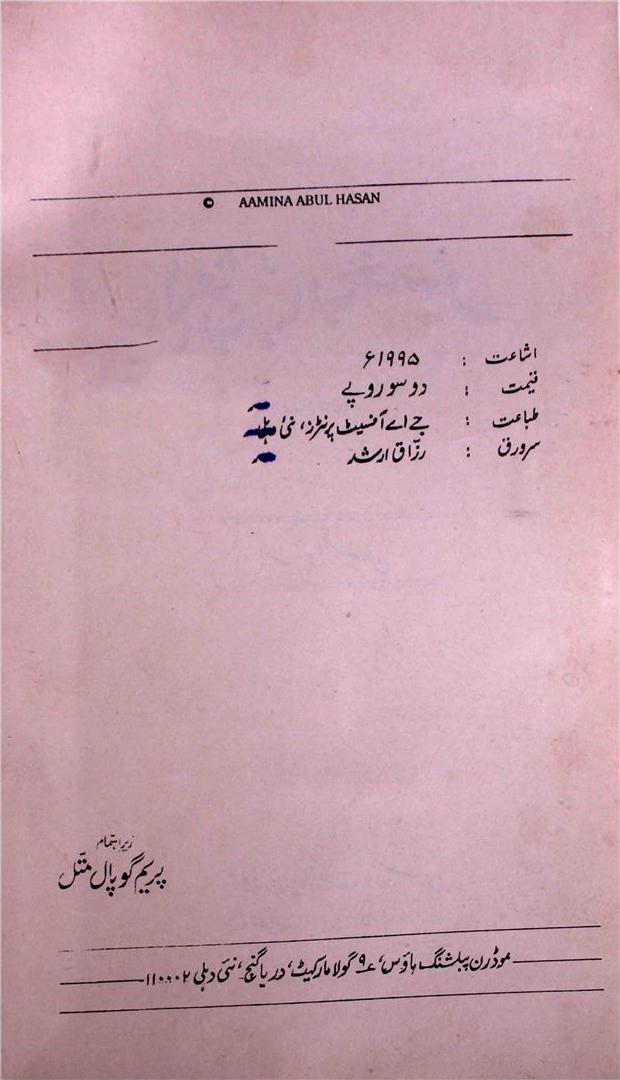 © AAMINA ABUL HASAN
اشاعت : ۱۹۹۵ء
قیمت : دو سو روپے
طباعت : جے اے آفسیٹ پرنٹرز، نئی
سرورق : رزّاق ارشد
زیرِ اہتمام
پریم گوپال متّل
موڈرن پبلشنگ ہاؤس، ۹ گولا مارکیٹ، دریا گنج، نئی دہلی ۱۱۰۰۰۲